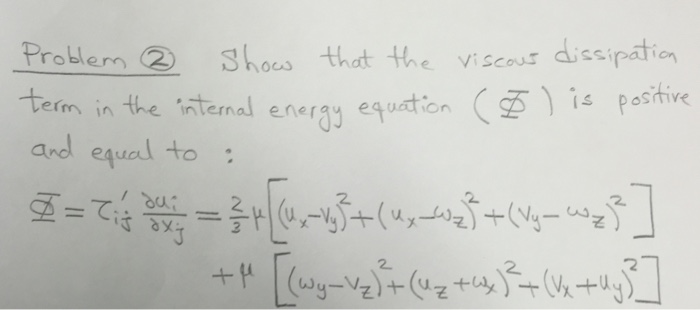 Problem ② Show that the viscous dissipation
term in the internal energy equation (Φ) is positive
and equal to :
Φ = τ'ij ∂ui/∂xj = 2/3 μ [(ux-vy)² + (ux-wz)² + (vy-wz)²]
+ μ [(wy-vz)² + (uz+wx)² + (vx+uy)²]